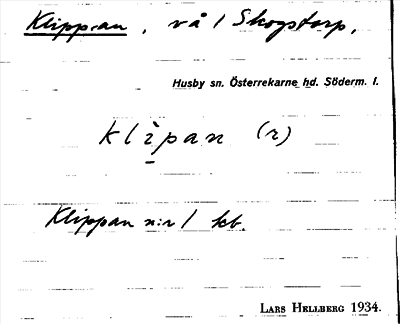 Klippan, vå / Skogstorp,
Husby sn. Österrekarne hd. Söderm. l.
klìpan (r)
Klippan n:r 1 kb.
LARS HELLBERG 1934.